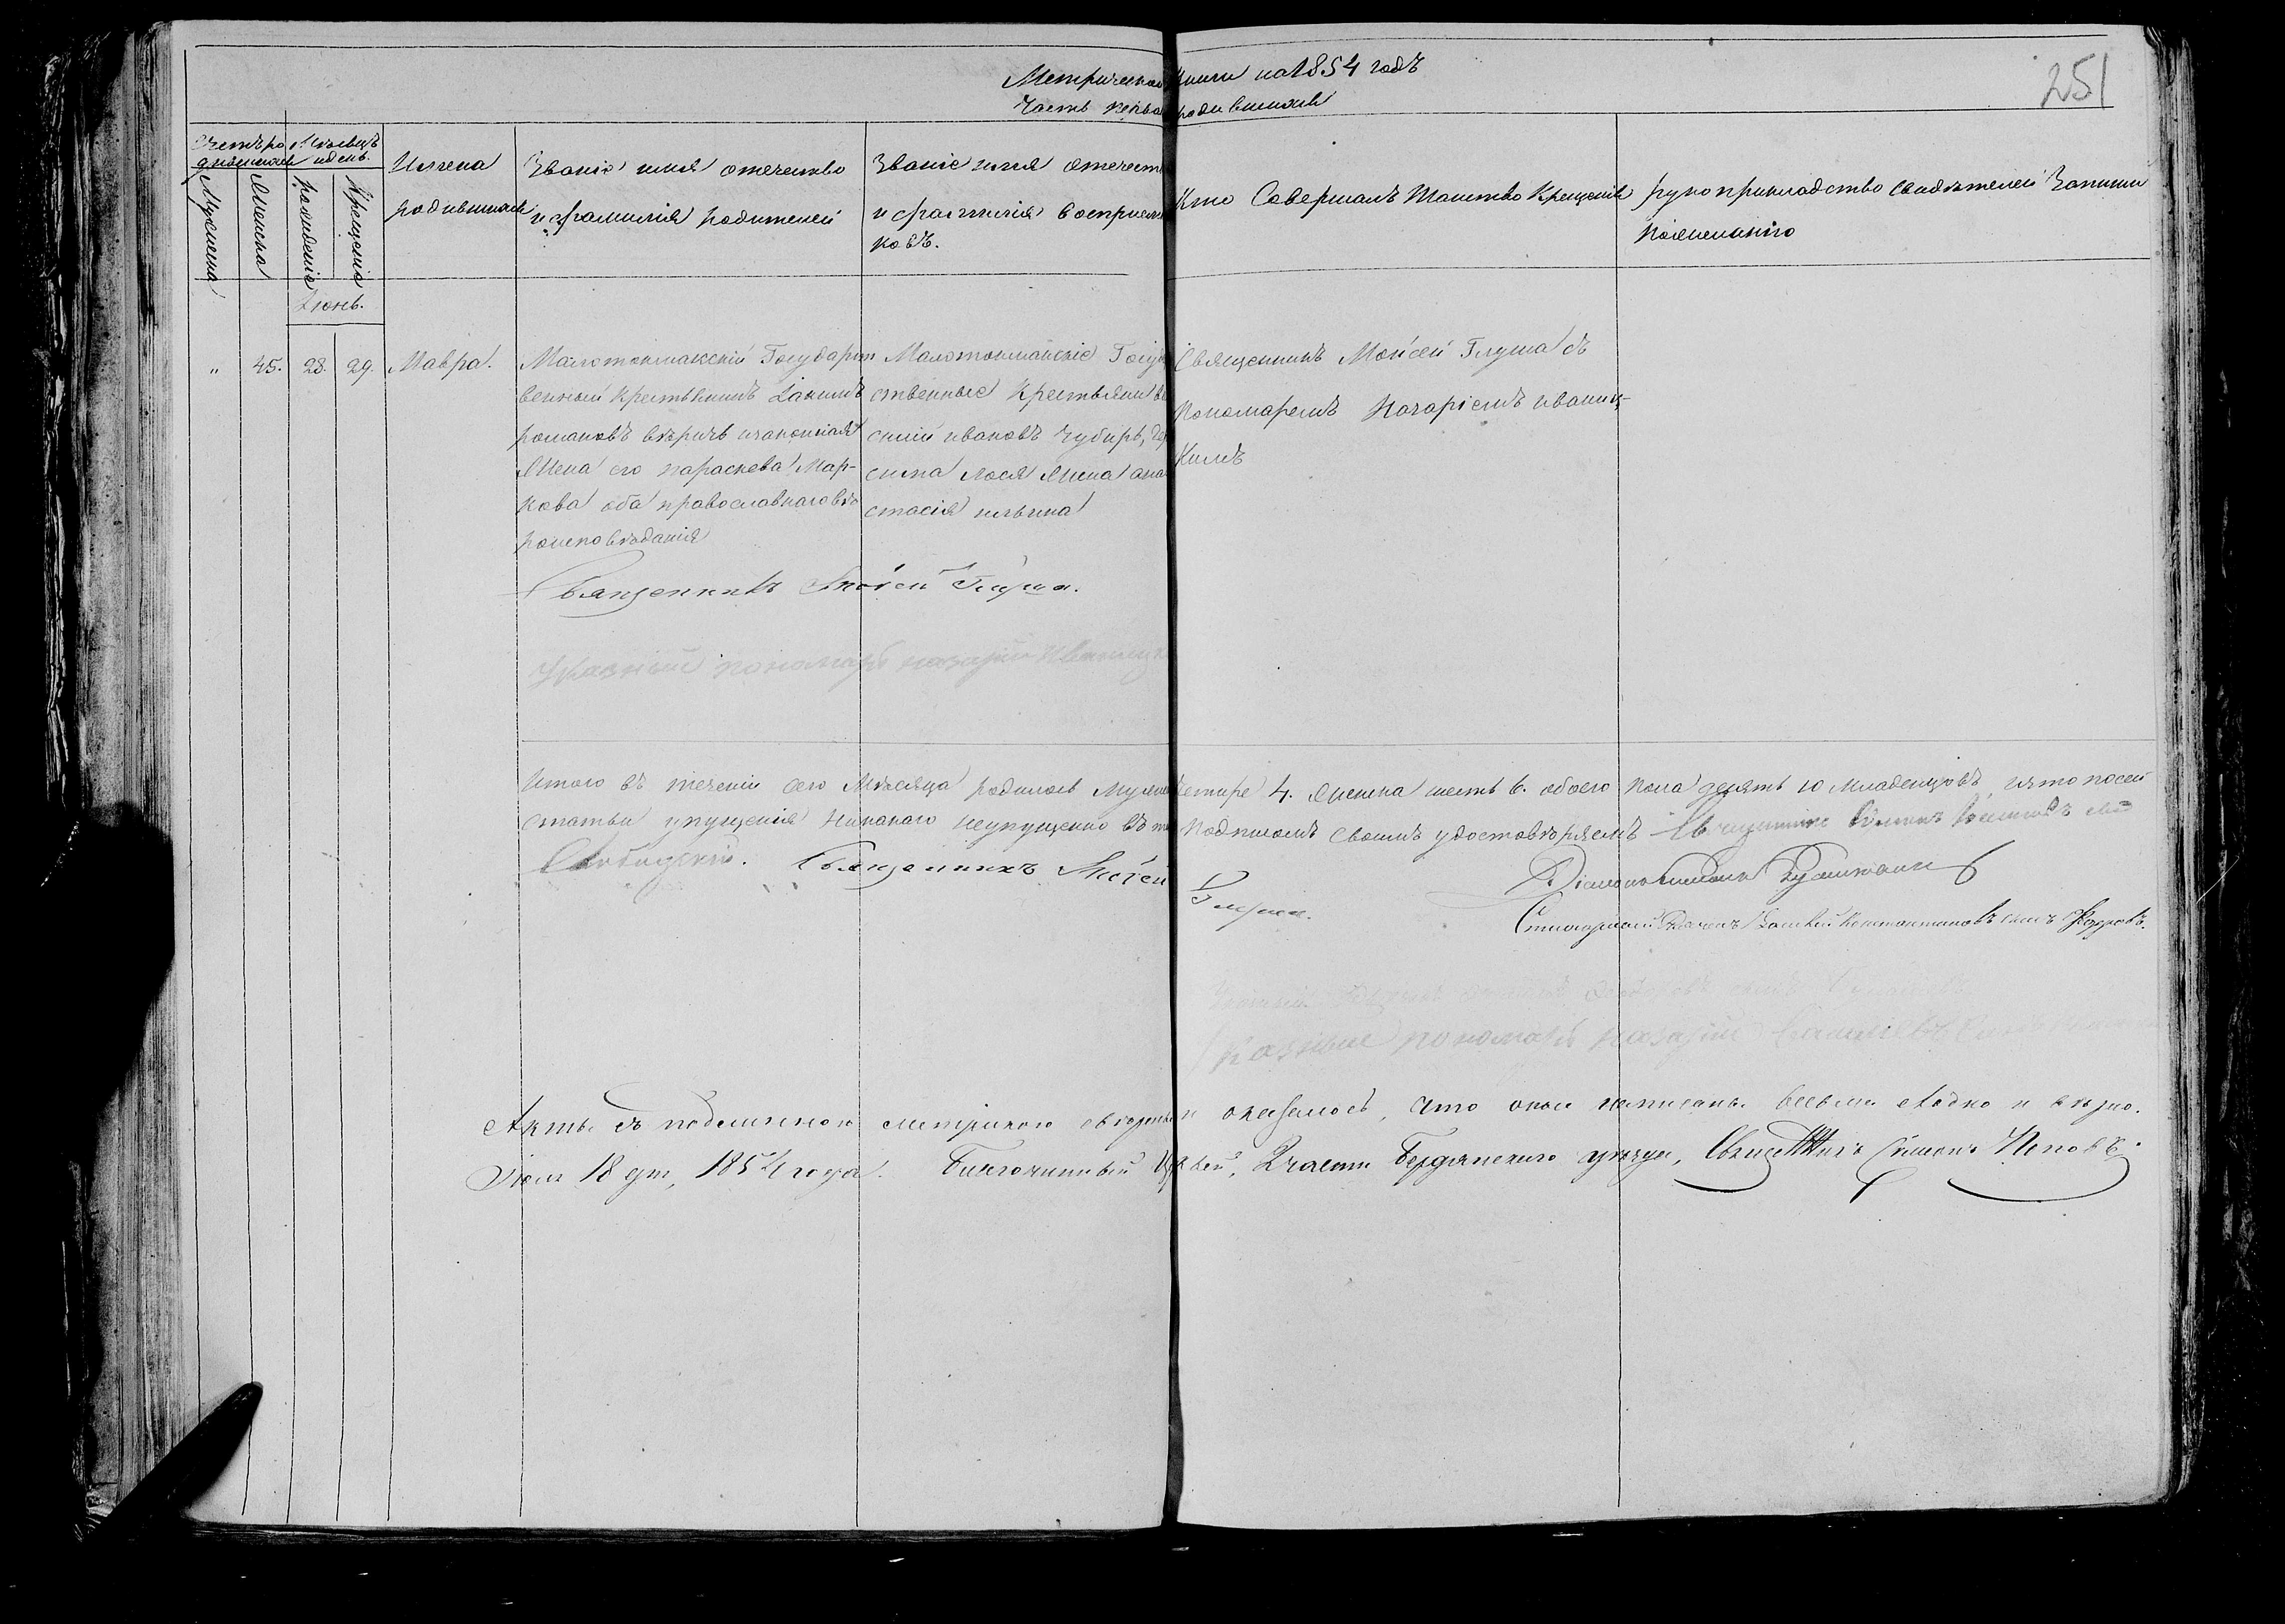 Метрической книги на 1854 годъ
Часть первая о родившихся
251
Счетъ ро
дившихся
Мѣсяцъ
и день.
Мужеска
Женска
рожденія
Крещенія
Имена
родившихся
Званіе имя отечество
и фамилія родителей
Званіе имя отечест
и фамилія воспріем
ковъ.
Кто Совершалъ Таинство Крещенія
рукоприкладство свидѣтелей Записи
по желанію
Іюнь.
" 45. 28. 29. Мавра.
Малотокмакскій Государст
венный крестьянинъ Іакимъ
романовъ и законная
Жена его параскева Мар-
кова оба православнаго вѣ
роисповѣданія
Малотокманскіе Госуд
ственные Крестьянинъ
ивановъ Чубирь,
Жена ана
стасія ильина
Священникъ Моисей Глуша съ
Пономаремъ Назаріемъ иваниц-
кимъ
Священникъ Моѵсей Глуша.
Указный пономарь назарій Иваницк
Итого въ теченіи сего Мѣсяца родилось Мужеска четыре 4. Женска шесть 6. обоего пола десять 10 младенцовъ, и что по сей
статьи упущенія Никакого неупущенно въ томъ подписомъ своимъ удостовѣряемъ Священникъ
Священникъ Моѵсей
Глуша.
Діаконъ
Константиновъ сынъ
пономарь назарій
Акты съ подлинною метрикою сверены и оказалось, что оныя написаны весьма сходно и вѣрно.
Іюля 18 дня, 1854 года. Благочинный Церквей, 2 части Бердянскаго уѣзда, Священникъ Симеонъ Поповъ.